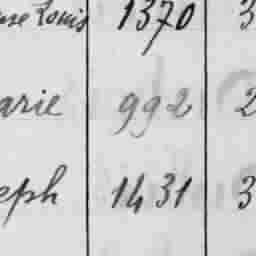 Louis 1370 3
arie 992 2
eph 1431 3